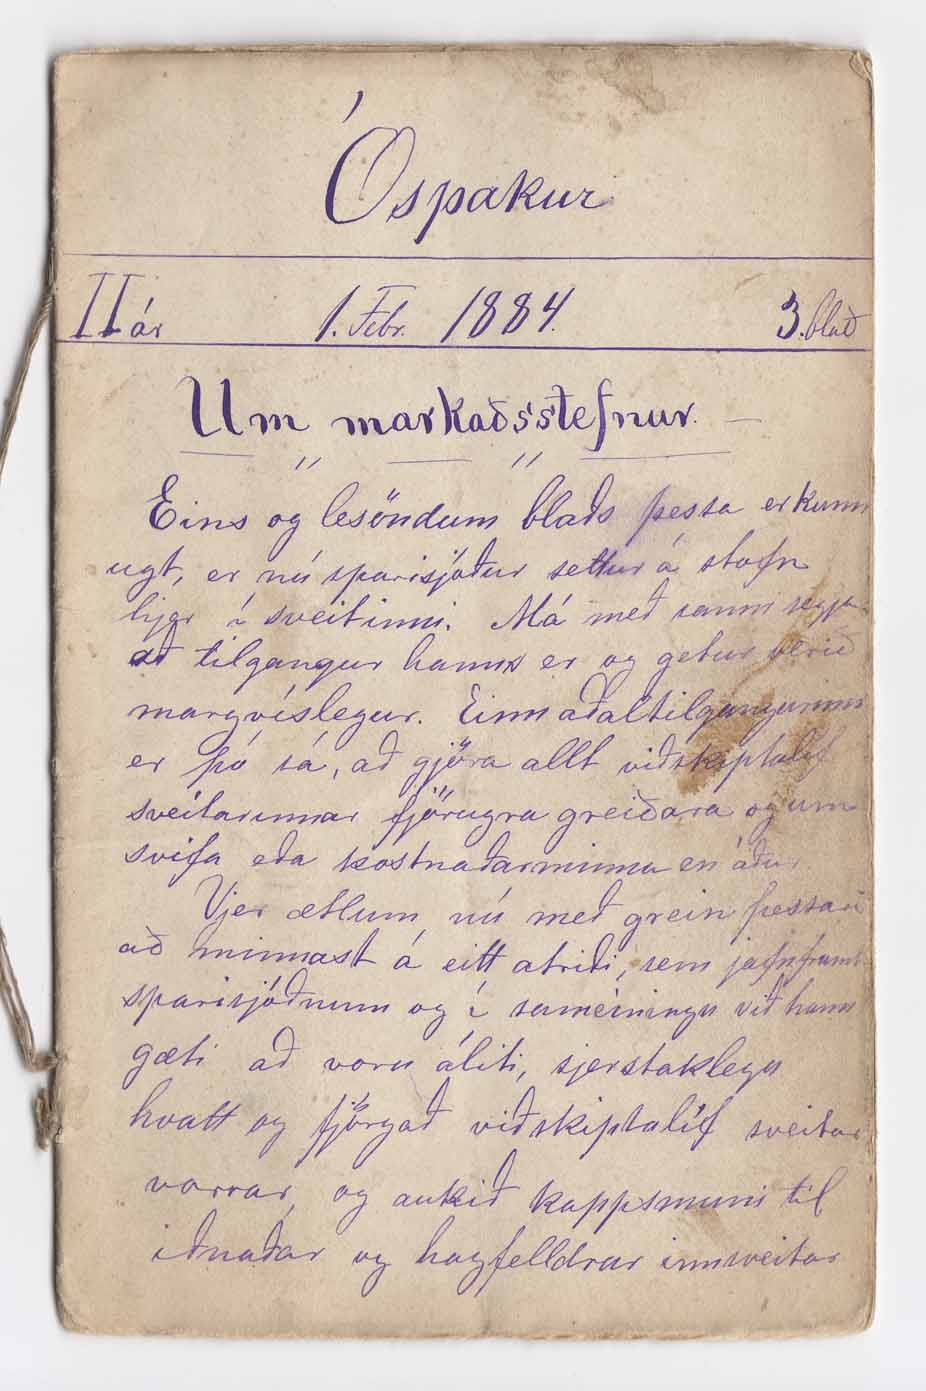 Óspakur
II ár 1. Febr. 1884. 3. blað
Um markaðsstefnur. —
Eins og lesöndum blaðs þessa er kunn
ugt, er nú sparisjóður settur á stofn
hjer í sveitinni. Má með sanni segja
að tilgangur hanns er og getur verið
margvíslegur. Einn aðaltilgangurinn
er þó sá, að gjöra allt viðskiptalíf
sveitarinnar fjörugra greiðara og um
svifa eða kostnaðarminna en áður
Vjer ætlum nú með grein þessari
að minnast á eitt atriði, sem jafnframt
sparisjóðnum og í sameiningu við hann
gæti að voru áliti, sjerstaklega
hvatt og fjörgað viðskiptalíf sveitar
vorrar, og aukið kappsmuni til
iðnaðar og hagfelldrar innsveitar